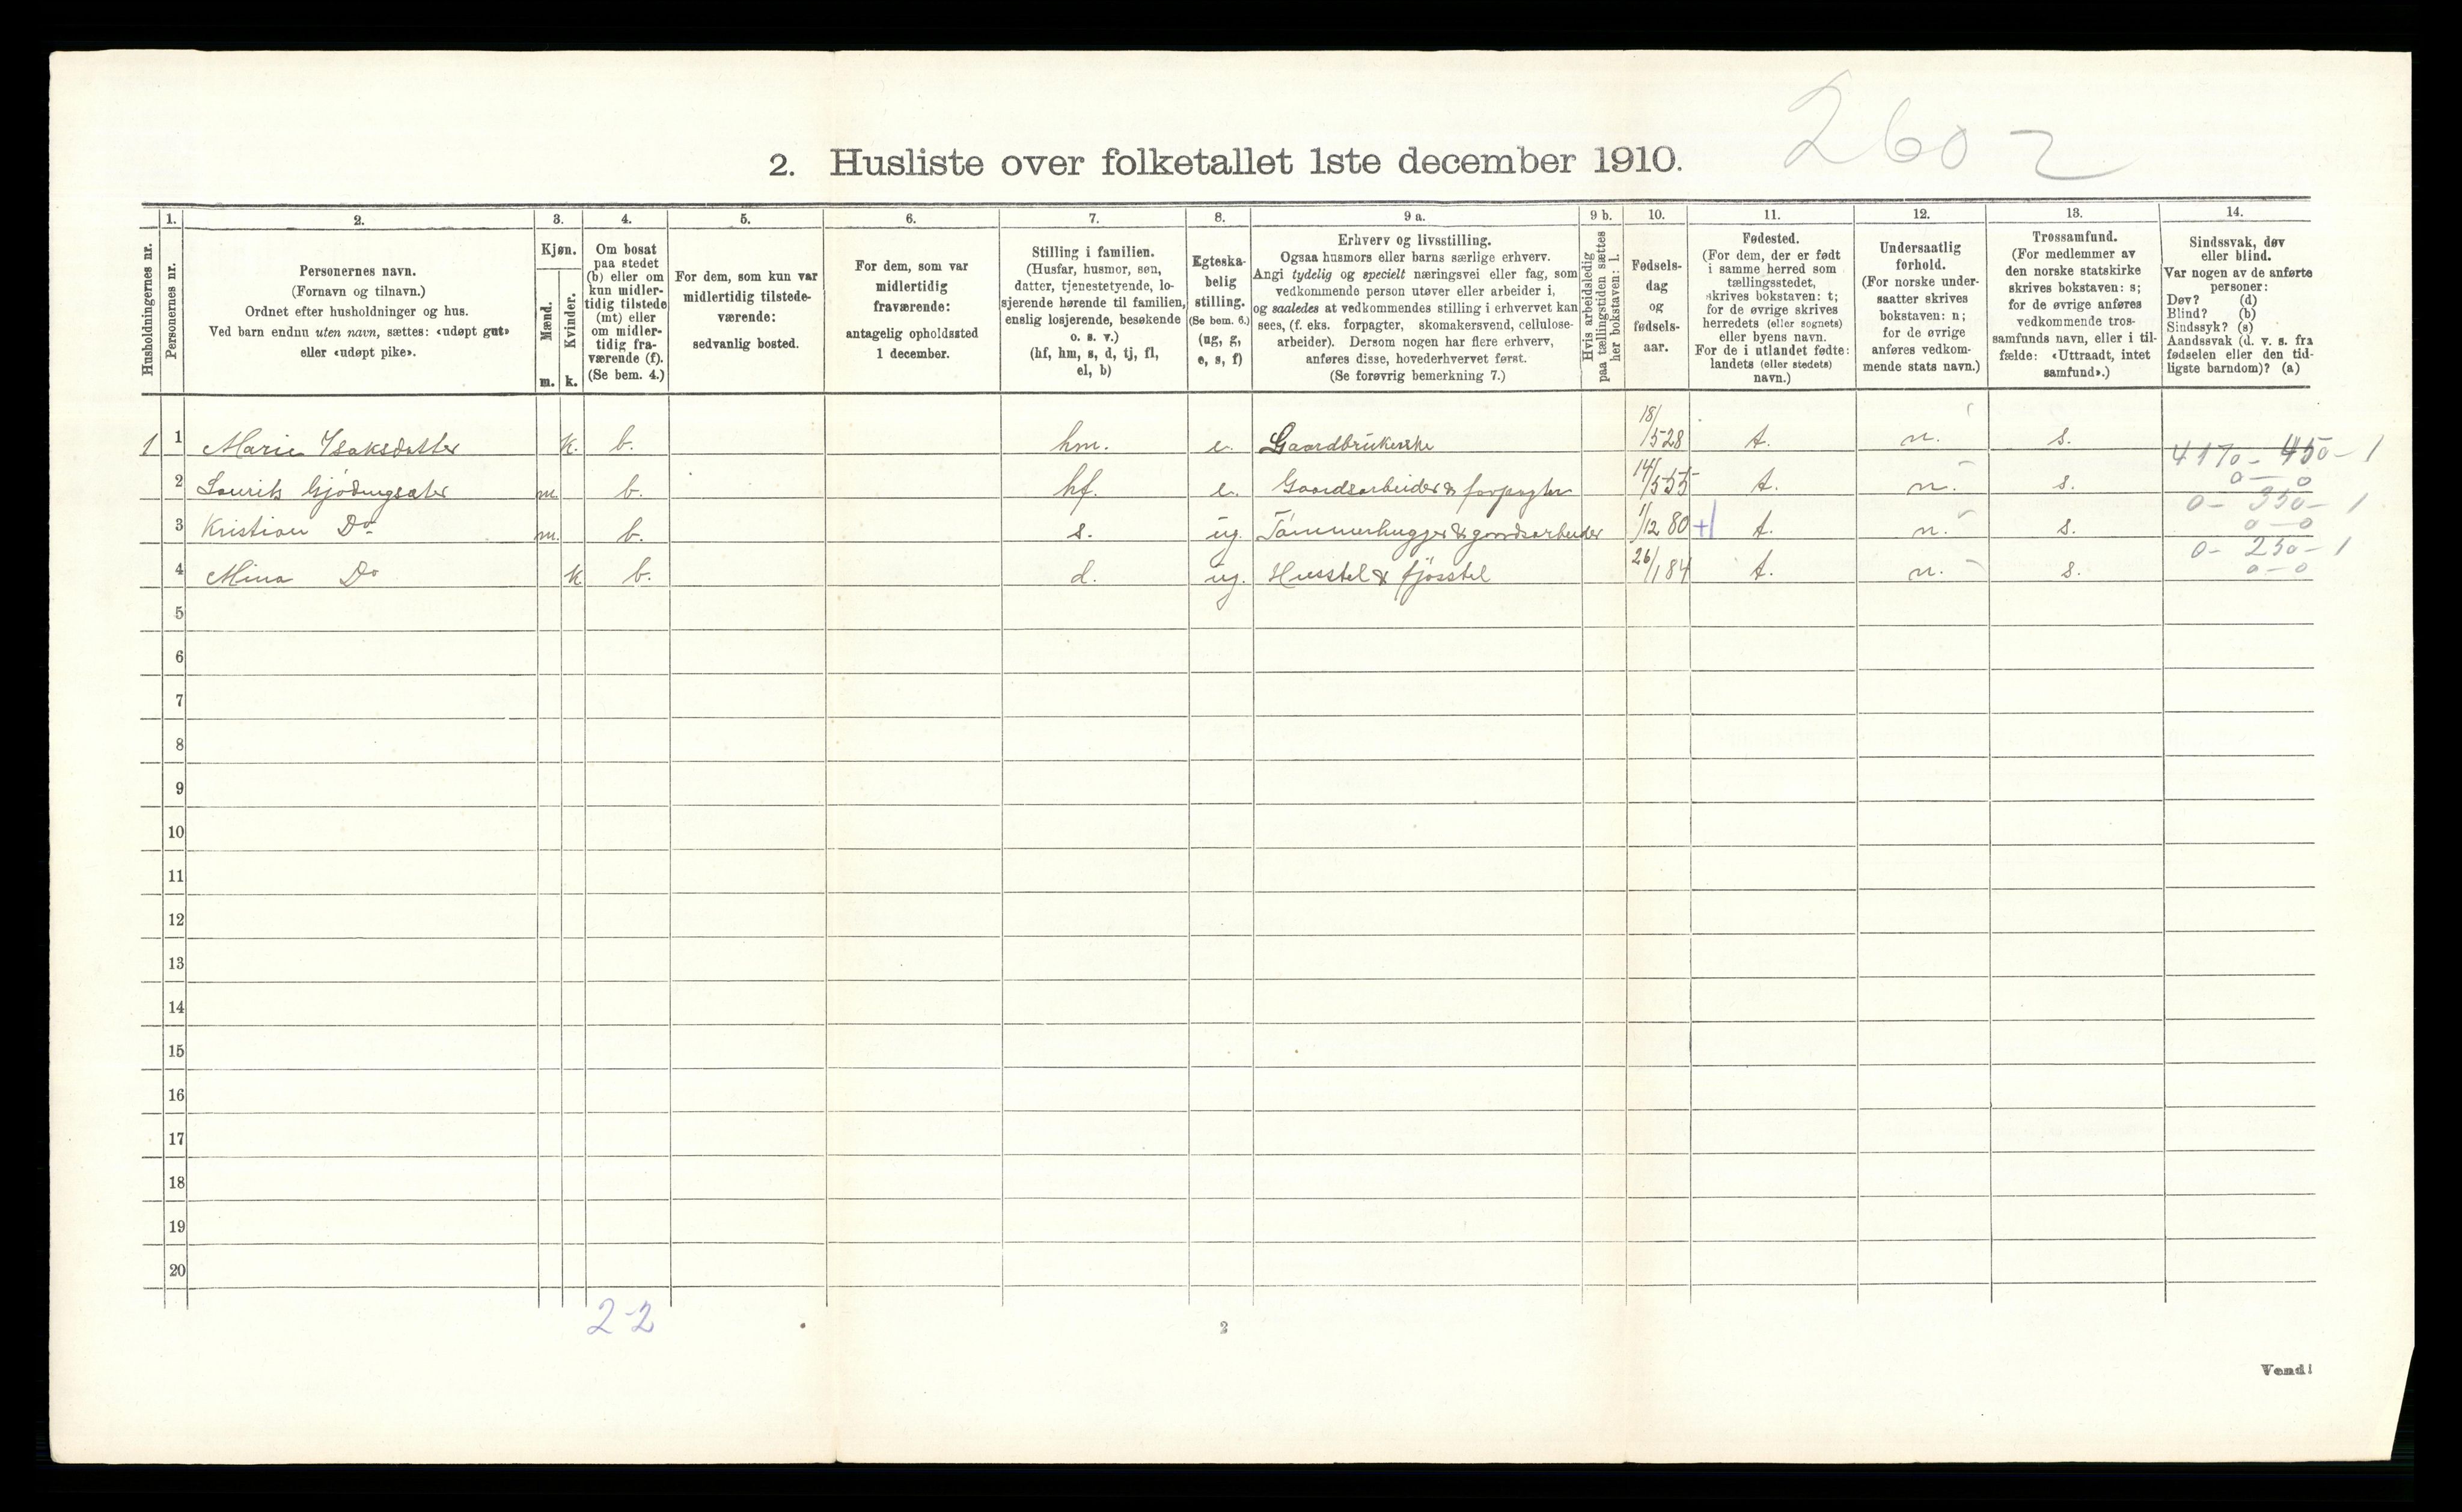 2602
2. Husliste over folketallet 1ste december 1910.
Husholdningernes nr.
1.
Personernes nr.
2.
Personernes navn.
(Fornavn og tilnavn.)
Ordnet efter husholdninger og hus.
Ved barn endnu uten navn, sættes: «udøpt gut»
eller «udøpt pike».
3.
Kjøn.
Mænd.
Kvinder.
m. k.
4.
Om bosat
paa stedet
(b) eller om
kun midler-
tidig tilstede
(mt) eller
om midler-
tidig fra-
værende (f).
(Se bem. 4.)
5.
For dem, som kun var
midlertidig tilstede-
værende:
sedvanlig bosted.
6.
For dem, som var
midlertidig
fraværende:
antagelig opholdssted
1 december.
7.
Stilling i familien.
(Husfar, husmor, søn,
datter, tjenestetyende, lo-
sjerende hørende til familien,
enslig losjerende, besøkende
o. s. v.)
(hf, hm, s, d, tj, fl,
el, b)
8.
Egteska-
belig
stilling.
(Se bem. 6.)
(ug, g,
e, s, f)
9 a.
Erhverv og livsstilling.
Ogsaa husmors eller barns særlige erhverv.
Angi tydelig og specielt næringsvei eller fag, som
vedkommende person utøver eller arbeider i,
og saaledes at vedkommendes stilling i erhvervet kan
sees, (f. eks. forpagter, skomakersvend, cellulose-
arbeider). Dersom nogen har flere erhverv,
anføres disse, hovederhvervet først.
(Se forøvrig bemerkning 7.)
9 b.
Hvis arbeidsledig
paa tællingstiden sættes
her bokstaven: l.
10.
Fødsels-
dag
og
fødsels-
aar.
11.
Fødested.
(For dem, der er født
i samme herred som
tællingsstedet,
skrives bokstaven: t;
for de øvrige skrives
herredets (eller sognets)
eller byens navn.
For de i utlandet fødte:
landets (eller stedets)
navn.)
12.
Undersaatlig
forhold.
(For norske under-
saatter skrives
bokstaven: n;
for de øvrige
anføres vedkom-
mende stats navn.)
13.
Trossamfund.
(For medlemmer av
den norske statskirke
skrives bokstaven: s;
for de øvrige anføres
vedkommende tros-
samfunds navn, eller i til-
fælde: «Uttraadt, intet
samfund».)
14.
Sindssvak, døv
eller blind.
Var nogen av de anførte
personer:
Døv? (d)
Blind? (b)
Sindssyk? (s)
Aandssvak (d. v. s. fra
fødselen eller den tid-
ligste barndom)? (a)
1 1 Marie Isaksdatter k. b. hm. e. Gaardbrukerske 18/5 28 t. n. s.
4170 - 450 - 1
2 Laurits Gjødingsæter m. b. hf. e. Gaardsarbeider & forpagter 14/5 55 t. n. s. 0 - 0
0 - 350 - 1
3 Kristian Do m. b. s. ug. Tømmerhugger & gaardsarbeider 1/12 80 + t. n. s. 0 - 0
0 - 250 - 1
4 Mina Do k b. d. ug. Husstel & fjøsstel 26/1 84 t. n. s. 0 - 0
5
6
7
8
9
10
11
12
13
14
15
16
17
18
19
20
2-2
2
Vend!